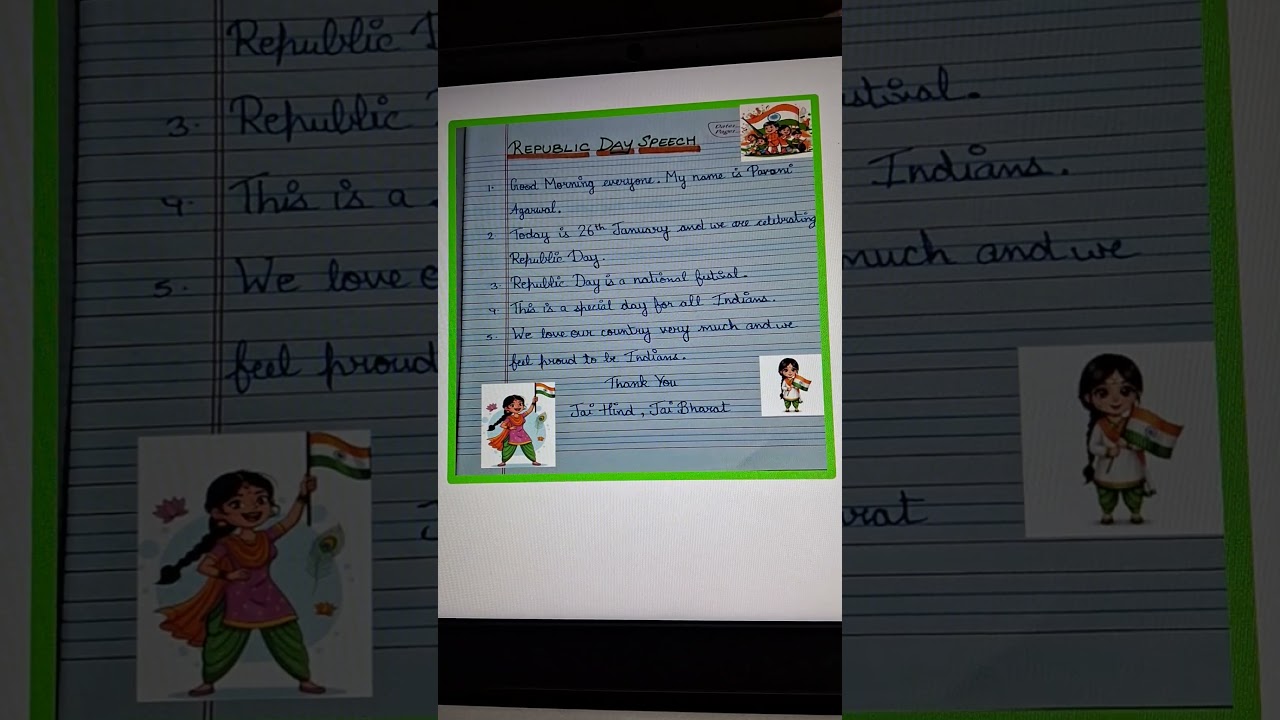 REPUBLIC DAY SPEECH
Date:
Page:
1. Good Morning everyone. My name is Pavani
Agarwal.
2. Today is 26th January and we are celebrating
Republic Day.
3. Republic Day is a national festival.
4. This is a special day for all Indians.
5. We love our country very much and we
feel proud to be Indians.
Thank You
Jai Hind, Jai Bharat